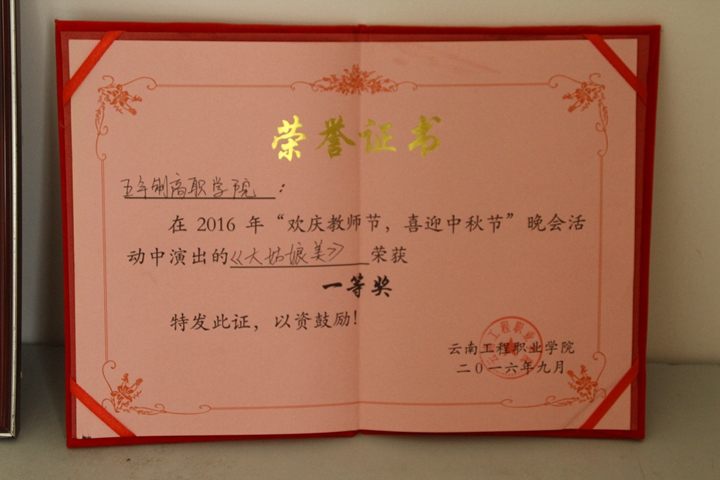 荣誉证书
五年制高职学院：
在 2016 年“欢庆教师节，喜迎中秋节”晚会活
动中演出的《大姑娘美》荣获
一等奖
特发此证，以资鼓励！
云南工程职业学院
二〇一六年九月